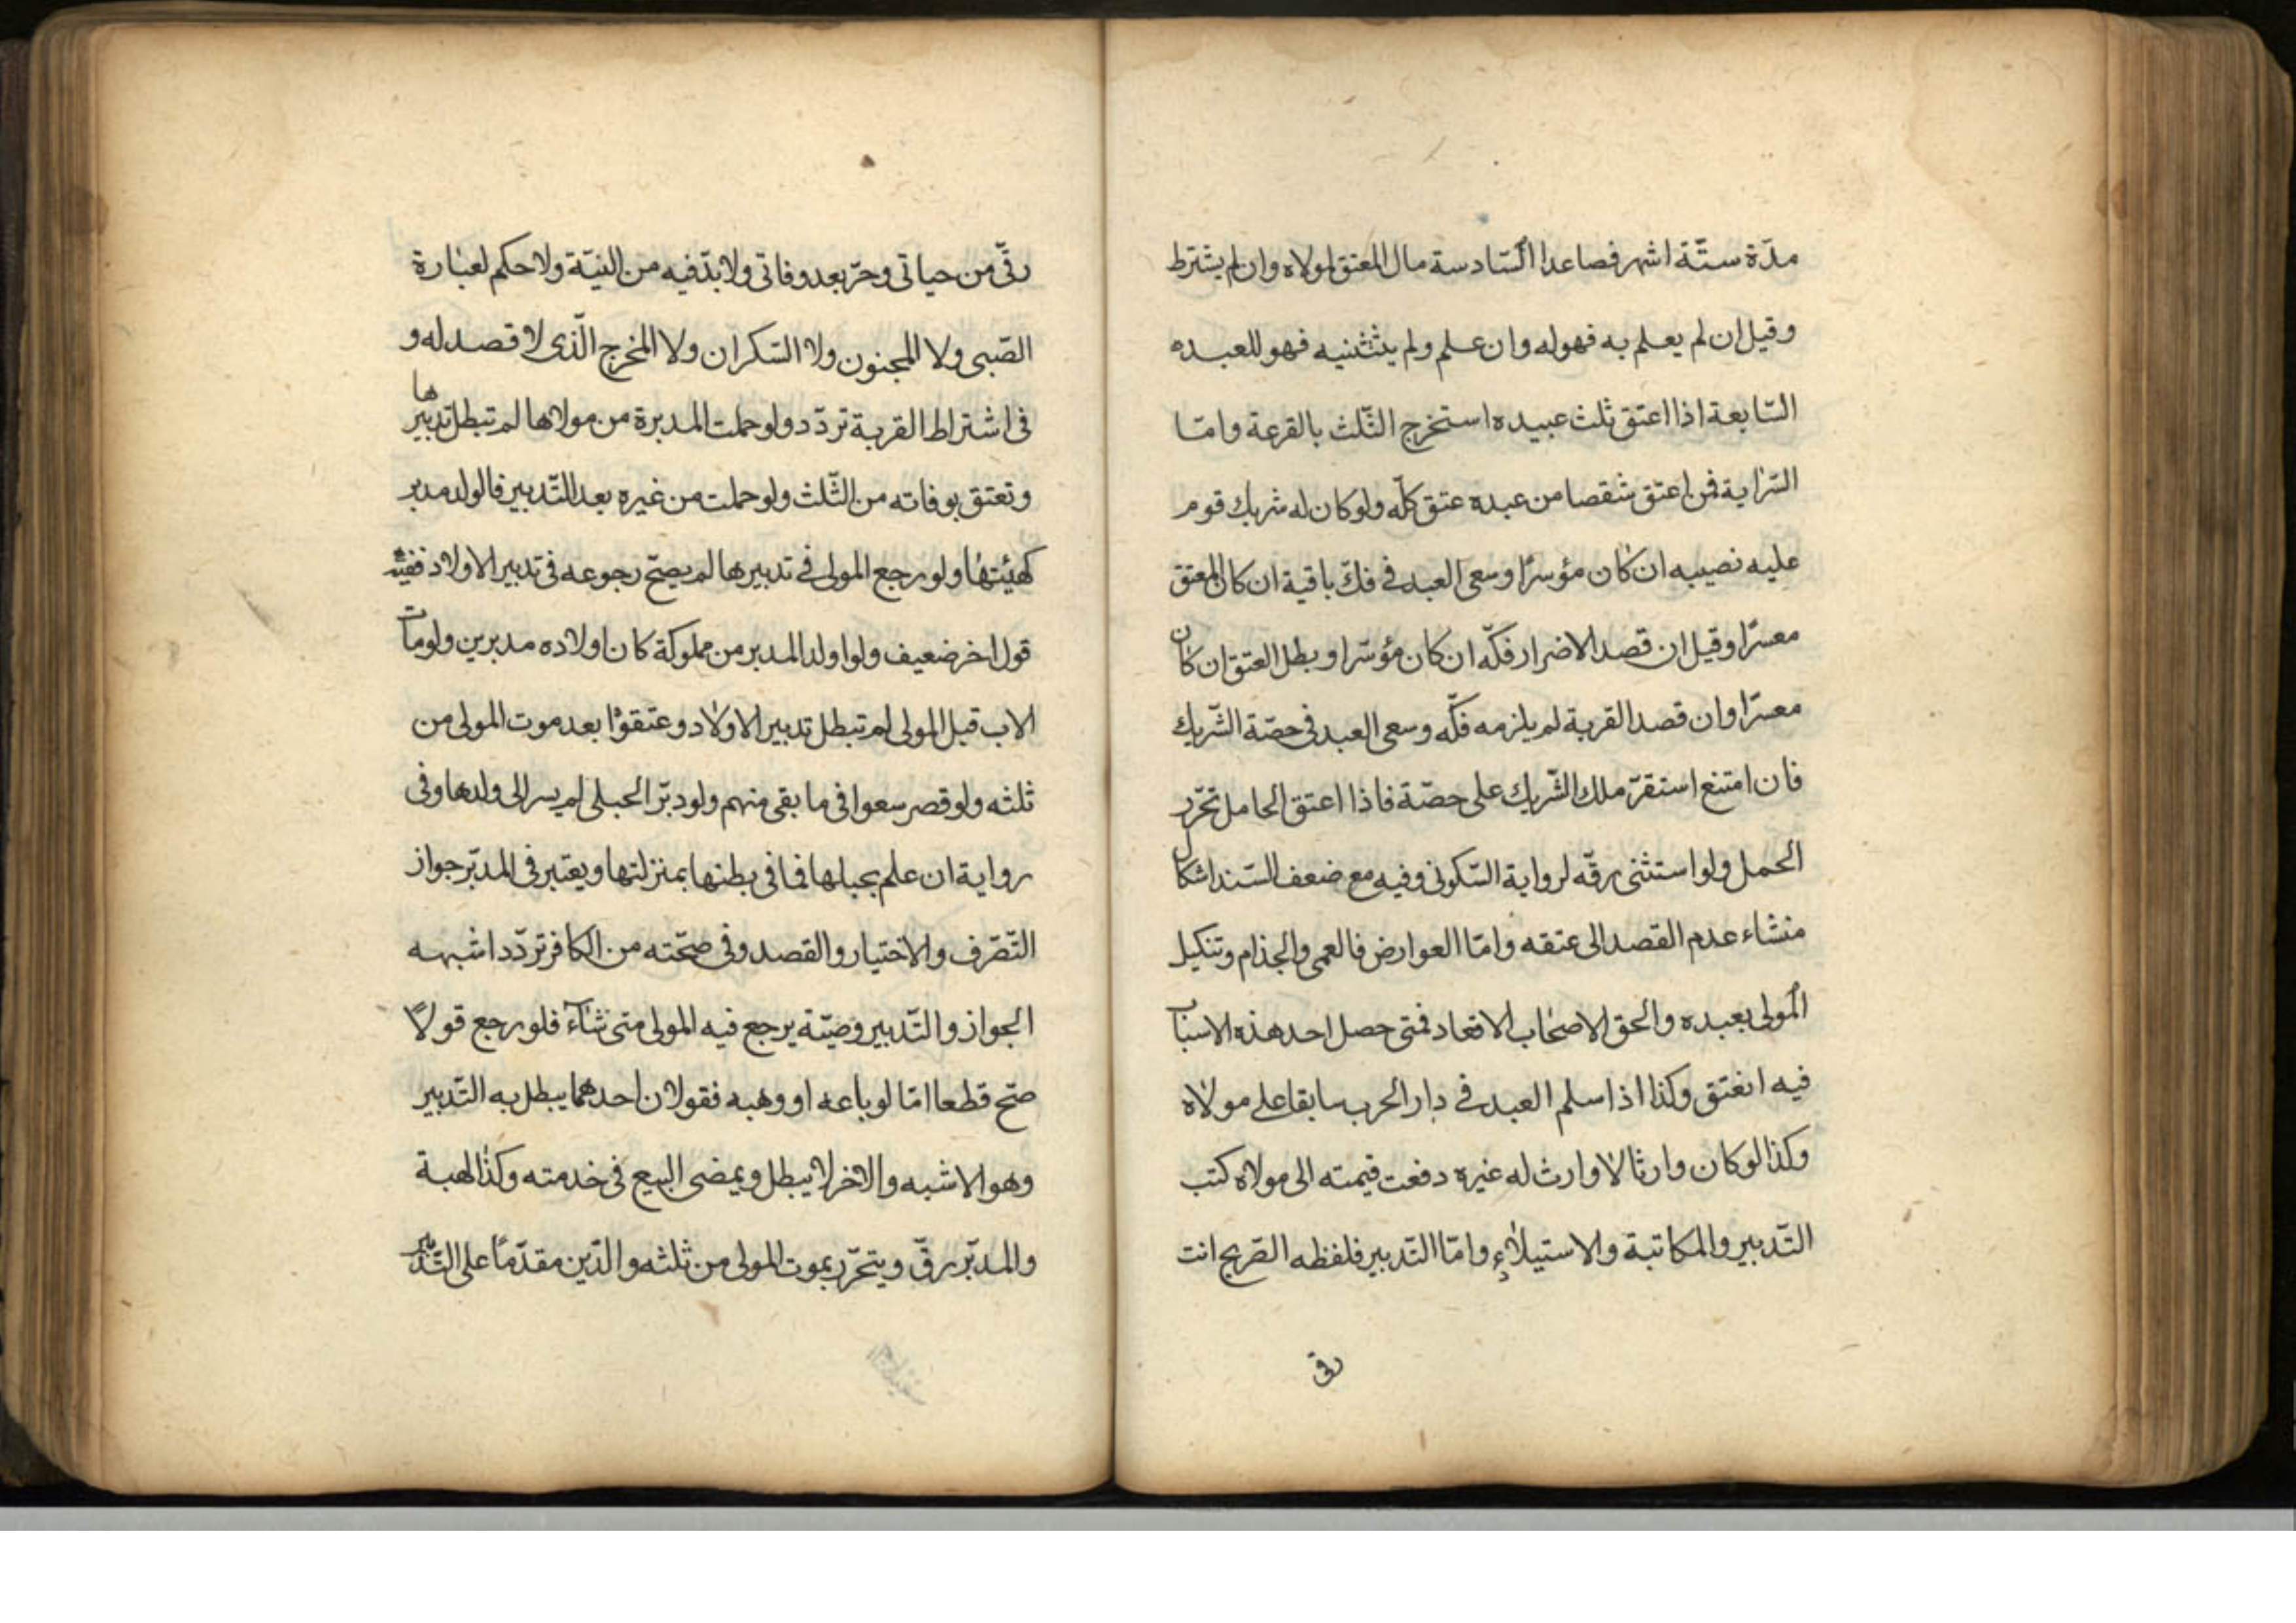 مدّة ستّة اشهر فصاعدا السّادسة مال المعتق لمولاه وان لم يشترط
وقيل ان لم يعلم به فهو له وان علم ولم يثتثنيه فهو للعبده
السّابعة اذا اعتق ثلث عبيده استخرج الثّلث بالقرعة وامّا
السّراية فمن اعتق شقصا من عبده عتق كلّه ولو كان له شريك قوم
عليه نصيبه ان كان مؤسرًا وسعى العبد فى فكّ باقية ان كان المعتق
معسرًا وقيل ان قصد الاضرار فكّه ان كان مؤسّرا وبطل العتق ان كان
معسرًا وان قصد القربة لم يلزمه فكّه وسعى العبد فى حصّة الشّريك
فان امتنع استقرّ ملك الشّريك على حصّة فاذا اعتق الحامل تحرّر
الحمل ولو استثنى رقّه لرواية السّكونى وفيه مع ضعف السّند اشكال
منشاء عدم القصد الى عتقه وامّا العوارض فالعمى والجذام وتنكيل
المولى بعبده والحق الاصحاب الاقعاد فمتى حصل احد هذه الاسباب
فيه انعتق وكذا اذا سلم العبد فى دار الحرب سابقا على مولاه
وكذا لو كان وارثا لا وارث له غيره دفعت قيمته الى مولاه كتب
التّدبير والمكاتبة والاستيلاء وامّا التّدبير فلفظه الصّريح انت
رق
رقّ من حياتى وحرّ بعد وفاتى ولا بدّ فيه من النيّة ولا حكم لعبارة
الصّبى ولا المجنون ولا السّكران ولا المخرج الّذى لا قصد له و
فى اشتراط القربة تردّد ولو حملت المدبرة من مولاها لم تبطل تدبيرها
وتعتق بوفاته من الثّلث ولو حملت من غيره بعد التّدبير فالولد مدبر
كهيئتها ولو رجع المولى فى تدبيرها لم يصحّ رجوعه فى تدبير الاولاد ففيه
قول اخر ضعيف ولو اولد المدبر من مملوكة كان اولاده مدبرين ولو مات
الاب قبل المولى لم تبطل تدبير الاولاد وعتقوا بعد موت المولى من
ثلثه ولو قصر سعوا فى ما بقى منهم ولو دبّر الحبلى لم يسر الى ولدها وفى
رواية ان علم بحبلها فما فى بطنها بمنزلتها ويعتبر فى المدبّر جواز
التّصّرف والاختيار والقصد وفى صحّته من الكافر تردّد اشبهه
الجواز والتّدبير وصيّة يرجع فيه المولى متى شاء فلو رجع قولًا
صحّ قطعا امّا لو باعه او وهبه فقولان احدهما يبطل به التّدبير
وهو الاشبه والاخر لا يبطل ويمضى البيع فى خدمته وكذا الهبة
والمدبّر رقّ ويتحرّر بموت المولى من ثلثه والدّين مقدّمًا على التّدبير